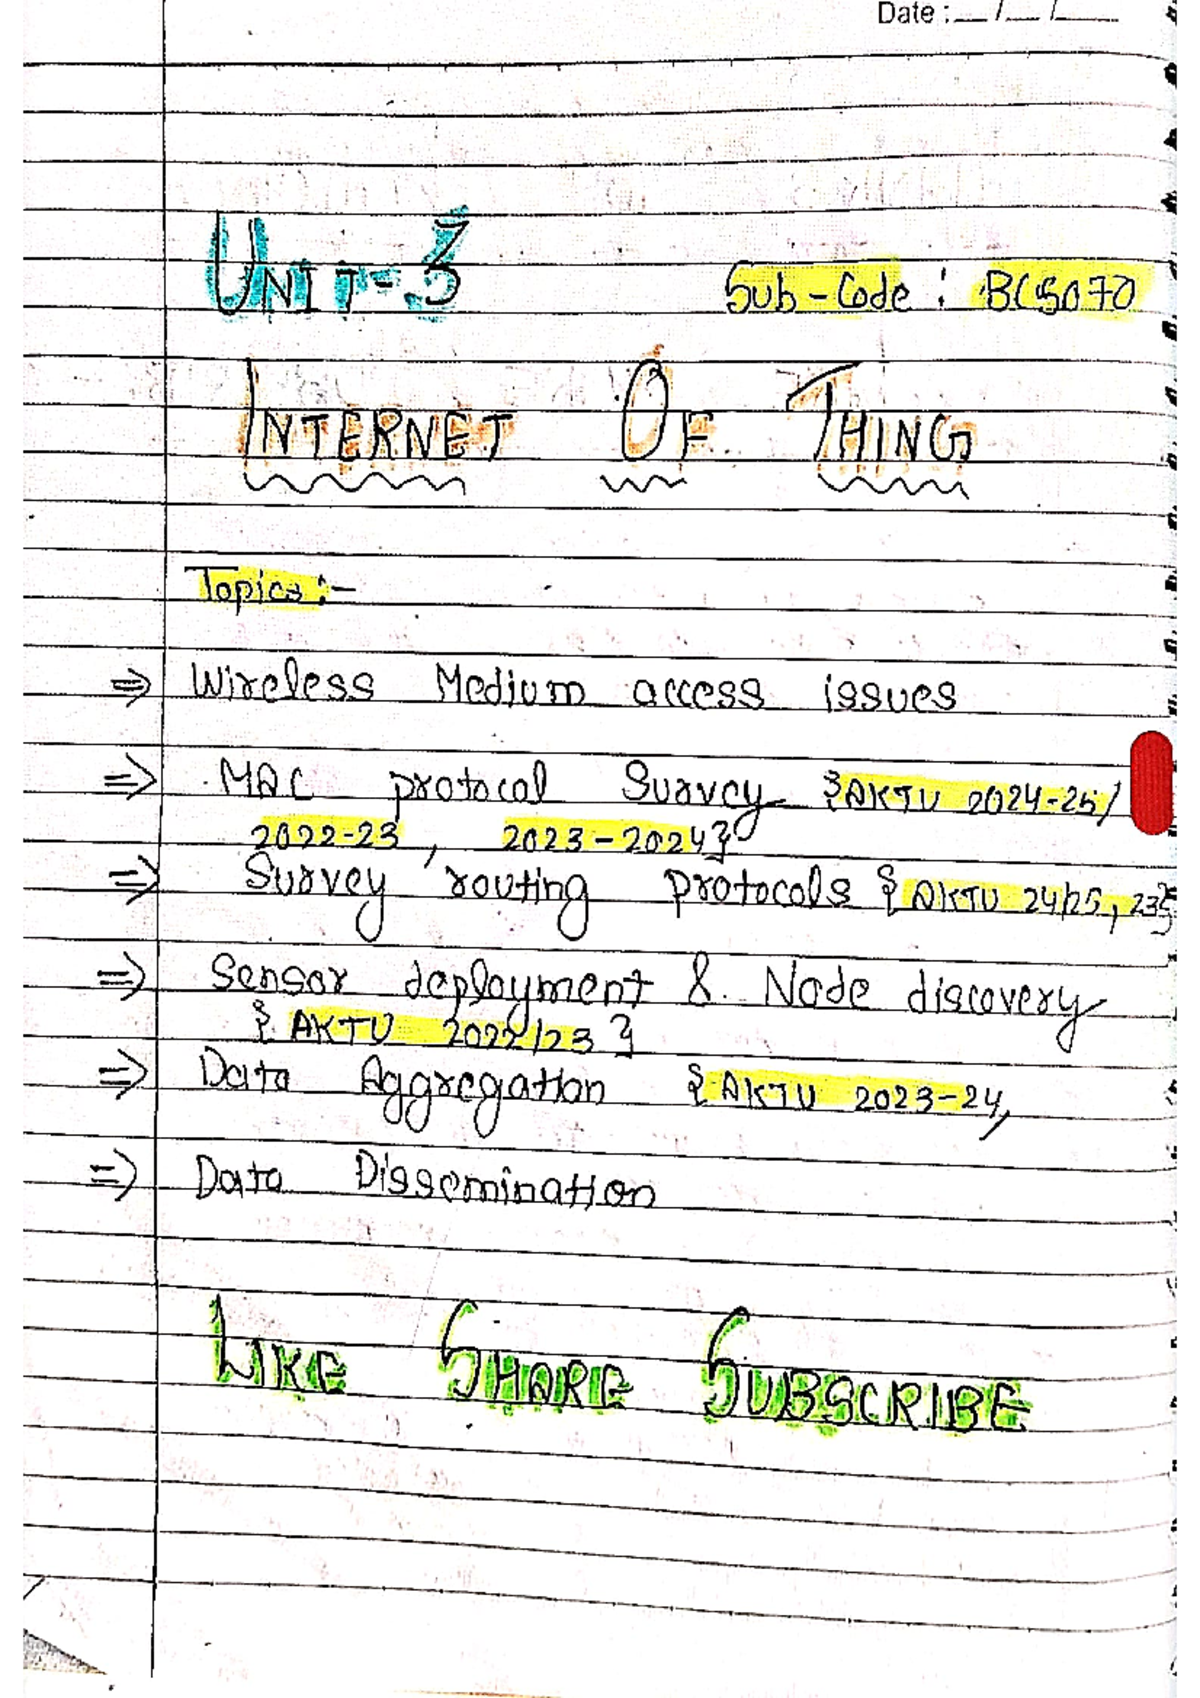 Date : __ / __ / ____
UNIT-3
Sub-Code : BCS070
INTERNET OF THING
Topics :-
⇒ Wireless Medium access issues
⇒ MAC protocol Survey {AKTU 2024-25/
2022-23 , 2023-2024}
⇒ Survey routing protocols { AKTU 24/25, 23}
⇒ Sensor deployment & Node discovery
{ AKTU 2022/23 }
⇒ Data Aggregation { AKTU 2023-24,
⇒ Data Dissemination
LIKE SHARE SUBSCRIBE